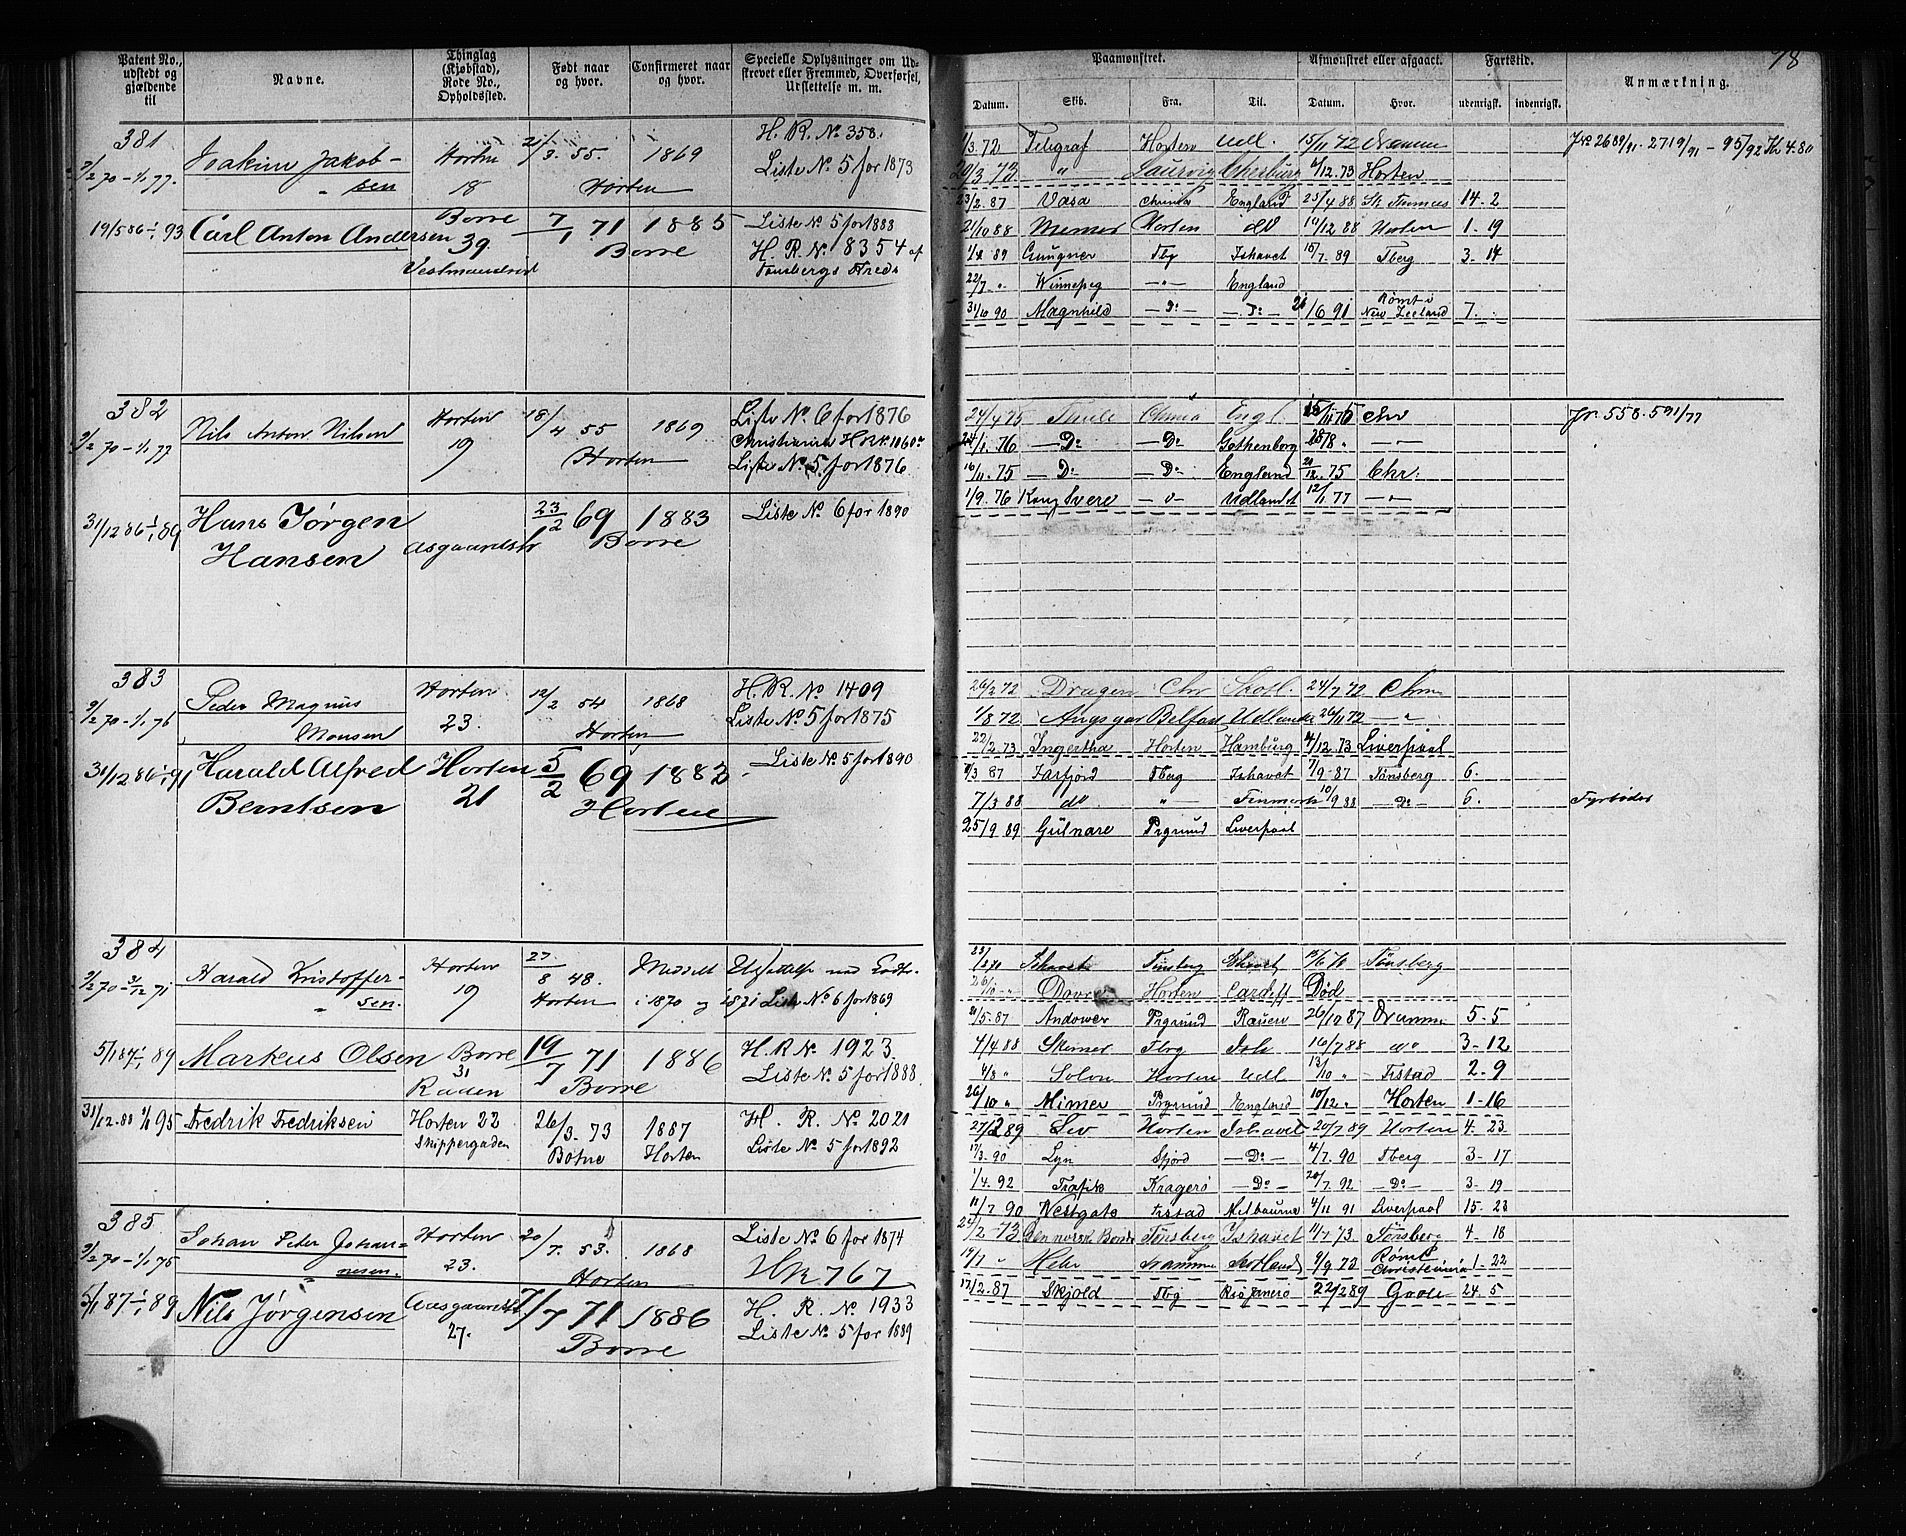 78
Patent No., udstedt og gjældende til
Navne.
Thinglag (Kjøbstad), Rode No., Opholdssted.
Født naar og hvor.
Confirmeret naar og hvor.
Specielle Oplysninger om Udskrevet eller Fremmed, Overførsel, Udslettelse m. m.
Paamønstret.
Afmønstret eller afgaaet.
Fartstid.
Anmærkning.
Datum. Skib. Fra. Til. Datum. Hvor. udenrigsk. indenrigsk.
381
2/2 70 – 1/1 77.
Joakim Jakob-
" sen
Horten
18
21/3. 55.
Horten
1869
H. R. No 358.
Liste No 5 for 1873
1/3. 72 Telegraf Horten Udl. 15/11 72 Dramm
20/3 73 " Laurvig Cherburg 6/12. 73 Horten
19/5 86 1/1 93
Carl Anton Andersen
Borre
39
7/1 71
1885
Borre
Liste No 5 for 1888
H. R. No 8354 af
Tønsbergs Kreds
23/2. 87 Vasa England 25/4 88 St Tommas 14. 2
21/10 88 Mimer Horten do 11/12 88 Horten 1. 19
1/4 89 Gungner Tbg Ishavet 15/7. 89 Tberg 3. 14
22/7. " Winnepeg — " — England
31/10 90 Magnhild — Do — Do 21/6 91 Rømt i New Zeeland 7.
382
2/2 70 – 1/1 77
Nils Anton Nilsen
Horten
19
18/4 55
Horten
1869
Liste No 6 for 1876
Christiania H R No 1860
Liste No 5 for 1876
24/4 75 Thule Engl. Chr
1. 76 — Do — Do Gothenborg
16/11. 75 — Do — Do England 20/12. 75 Chr.
1/9. 76 Kong Svere — " — Udlandet 12/1 77 — " —
Jr. 558. 591/77
31/12 86 1/1 89
Hans Jørgen
Hansen
Aasgaardstr
23/2 69
1883
Borre
Liste No 6 for 1890
383
2/2 70 – 1/1 76
Peder Magnus
Monsen
Horten
23.
12/2 54
Horten
1868
H. R. No 1409
Liste No 5 for 1875
26/2 72 Dragen Chr Skotl. 24/7. 72 Chr
1/8 72 Angsgar Belfast Udlandet 26/11 72 — " —
22/2. 73 Ingertha Horten Hamburg 4/12. 73 Liverpool
31/12 86 1/1 91
Harald Alfred
Berntsen
Horten
21
5/2 69
1882
Horten
Liste No 5 for 1890
/3 87 Jarfjord Tberg Ishavet 7/9. 87 Tønsberg 6.
7/3 88 do " Finmark 10/9 88 — Do — 6. Fyrbøder
25/9 89 Gulnare Prgrund Liverpool
384
2/2 70 – 31/12 71
Harald Kristoffer-
" sen.
Horten
19
27/8 48.
Horten
Meddelt i 1870 og 1871
Liste No 6 for 1869
Ishavet Tønsberg Ishavet Tønsberg
26/10 " Dovre Horten Cardiff Død
5/1 87 1/1 89
Markus Olsen
Borre
31
19/7 71
1886
Borre
H. R No 1923.
Liste No 5 for 1888
21/5. 87 Andower Prgrund 26/10 87 Dramm 5. 5
4/4 88 Skirner Tbrg Ish 16/7 88 do 3. 12
4/8 " Solon Horten Udl. 13/10 " Fistad 2. 9
26/10 " Mimer Prgrund England 10/12 " Horten 1. 16
31/12. 88 1/1 95
Fredrik Fredriksen
Horten 22
Skippergaden
26/3. 73
Botne
1887
Horten
H. R. No 2021
Liste No 5 for 1892
27/2 89 Liv Horten Ishavet 20/7 89 Horten 4. 23.
17/3. 90 Lyn Sfjord — Do — 4/7. 90 Tberg 3. 17
1/4. 92 Trafik Kragerø — Do — 20/7. 92 — Do — 3. 19
11/7 90 Westgate Fistad Melbourne 4/11 91 Liverpool 15. 23
385
2/2 70 – 1/1 75
Johan Peter Johan-
" nesen.
Horten
23.
20/7. 53.
Horten
1868
Liste No 6 for 1874
HR 767
2/2 73 Den norske Bonde Tønsberg Ishavet 11/7. 73 Tønsberg 4. 18
19/7 " Hebe Dramm Skotland 9/9 73 Rømt Christiania 1. 22
5/1 87 1/1 89
Nils Jørgensen
Aasgaardstr
27.
7/7 71
1886
Borre
H. R. No 1933
Liste No 5 for 1889
17/2. 87 Skjold Tbg Rio Janero 22/2 89 24. 5